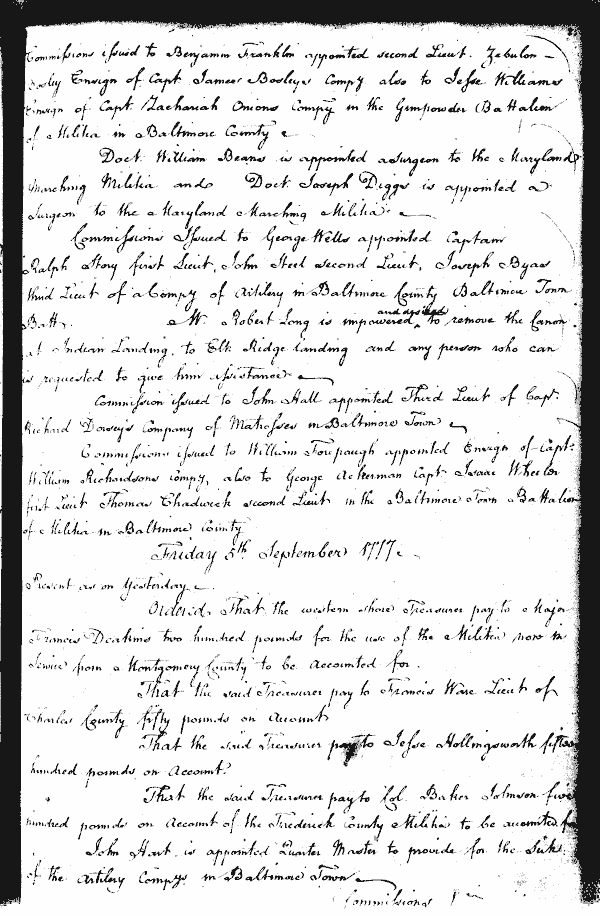 Commissions issued to Benjamin Franklin appointed second Lieut. Zebulon
Bosley Ensign of Capt James Bosleys Compy also to Jesse Williams
Ensign of Capt. Zachariah Onions Compy in the Gunpowder Battalion
of Militia in Baltimore County
Doct. William Beans is appointed a Surgeon to the Maryland
Marching Militia and Doct. Joseph Diggs is appointed a
Surgeon to the Maryland Marching Militia
Commissions Issued to George Wells appointed Captain
Ralph Story first Lieut, John Steel second Lieut, Joseph Byas
third Lieut of a Compy of Artilery in Baltimore County Baltimore Town
Batt. Mr. Robert Long is impowered and desired to remove the Canon
at Indian Landing, to Elk Ridge landing and any person who can
is requested to give him assistance
Commission issued to John Hall appointed Third Lieut of Capt.
Richard Dorsey's Company of Matrosses in Baltimore Town
Commissions issued to William Forepaugh appointed Ensign of Capt.
William Richardsons Compy, also to George Ackerman Capt. Isaac Wheeler
first Lieut Thomas Chadwick second Lieut in the Baltimore Town Battalion
of Militia in Baltimore County
Friday 5th September 1777
Present as on Yesterday
Ordered, That the western shore Treasurer pay to Major
Francis Deakins two hundred pounds for the use of the Militia now in
Service from Montgomery County to be accounted for.
That the said Treasurer pay to Francis Ware Lieut of
Charles County fifty pounds on Account
That the said Treasurer pay to Jesse Hollingsworth fifteen
hundred pounds on Account.
That the said Treasurer pay to Col. Baker Johnson five
hundred pounds on Account of the Frederick County Militia to be accounted for
John Hart is appointed Quarter Master to provide for the Sick
of the Artilery Compys in Baltimore Town
Commissions